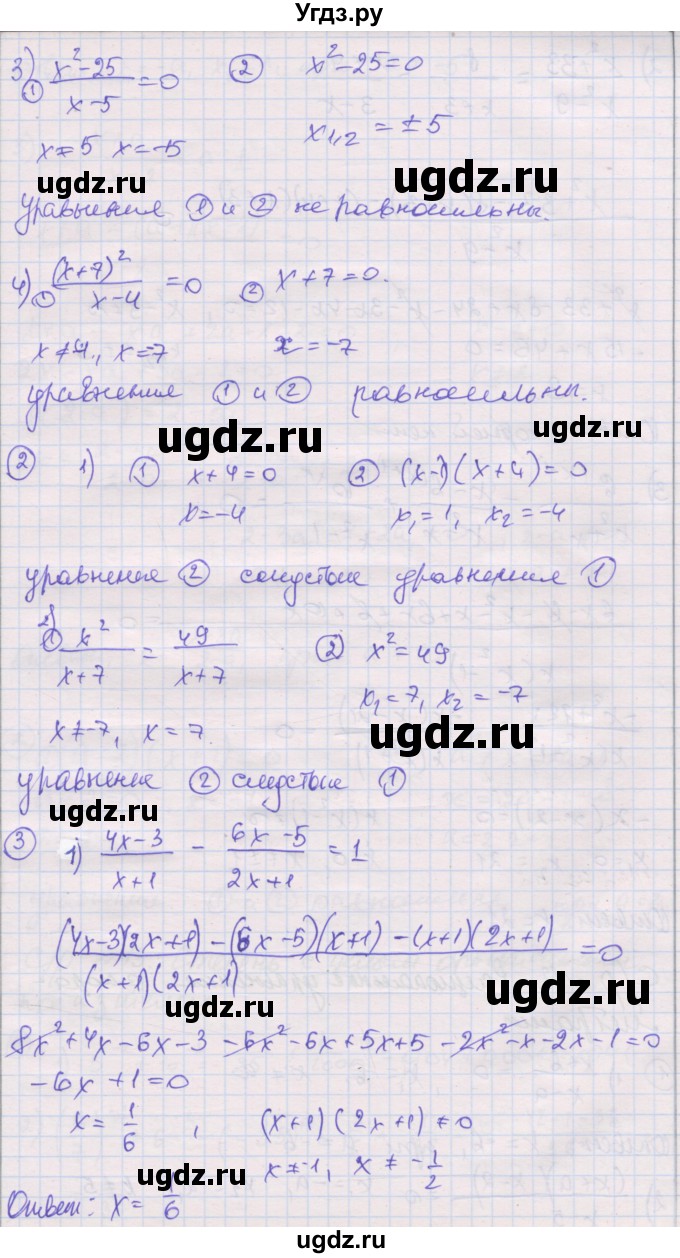 Угдз.ру
3) ① (x²-25)/(x-5) = 0 ② x²-25=0
x≠5 x=-5 x₁,₂ = ±5
ugdz.ru
ugdz.ru
Уравнения ① и ② не равносильны.
4) ① (x+7)²/(x-4) = 0 ② x+7=0.
x≠4, x=-7 x=-7
уравнения ① и ② равносильны.
ugdz.ru
ugdz.ru
② 1) ① x+4=0 ② (x-1)(x+4)=0
x=-4 x₁=1, x₂=-4
уравнение ② следствие уравнения ①
2) ① x²/(x+7) = 49/(x+7) ② x²=49
x₁=7, x₂=-7
x≠-7, x=7
ugdz.ru
уравнение ② следствие ①
ugdz.ru
③ 1) (4x-3)/(x+1) - (6x-5)/(2x+1) = 1
((4x-3)(2x+1)-(6x-5)(x+1)-(x+1)(2x+1))/((x+1)(2x+1)) = 0
ugdz.ru
ugdz.ru
8x²+4x-6x-3-6x²-6x+5x+5-2x²-x-2x-1=0
-6x+1=0
x=1/6, (x+1)(2x+1)≠0
x≠-1, x≠-1/2
ugdz.ru
Ответ: x=1/6
ugdz.ru